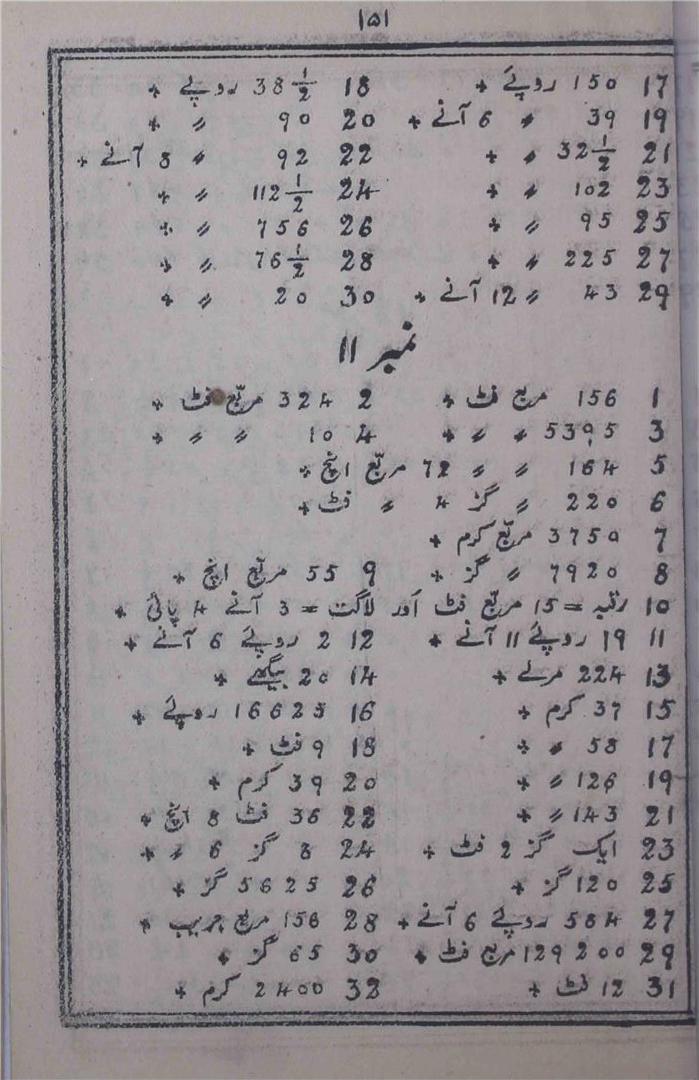 ۱۵۱
17 150 روپے + 18 38½ روپے +
19 39 〃 6 آنے + 20 90 〃 +
21 32½ 〃 + 22 92 〃 8 آنے +
23 102 〃 + 24 112½ 〃 +
25 95 〃 + 26 756 〃 +
27 225 〃 + 28 76½ 〃 +
29 43 〃 12 آنے + 30 20 〃 +
نمبر 11
1 156 مربع فٹ + 2 324 مربّع فٹ +
3 5395 〃 〃 + 4 10 〃 〃 +
5 164 〃 〃 72 مربّع انچ +
6 220 〃 گز 4 〃 فٹ +
7 3750 مربّع کرم +
8 7920 〃 گز + 9 55 مربّع انچ +
10 رقبہ = 15 مربّع فٹ اور لاگت = 3 آنے 4 پائی +
11 19 روپے 11 آنے + 12 2 روپے 6 آنے +
13 224 مرلے + 14 20 بیگھے +
15 37 کرم + 16 16625 روپے +
17 58 〃 + 18 9 فٹ +
19 126 〃 + 20 39 کرم +
21 143 〃 + 22 36 فٹ 8 انچ +
23 ایک گز 2 فٹ + 24 8 گز 6 〃 +
25 120 گز + 26 5625 گز +
27 584 روپے 6 آنے + 28 156 مربع جریب +
29 129200 مربع فٹ + 30 65 گز +
31 12 فٹ + 32 2400 کرم +